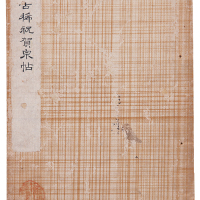 古稀祝賀泉帖